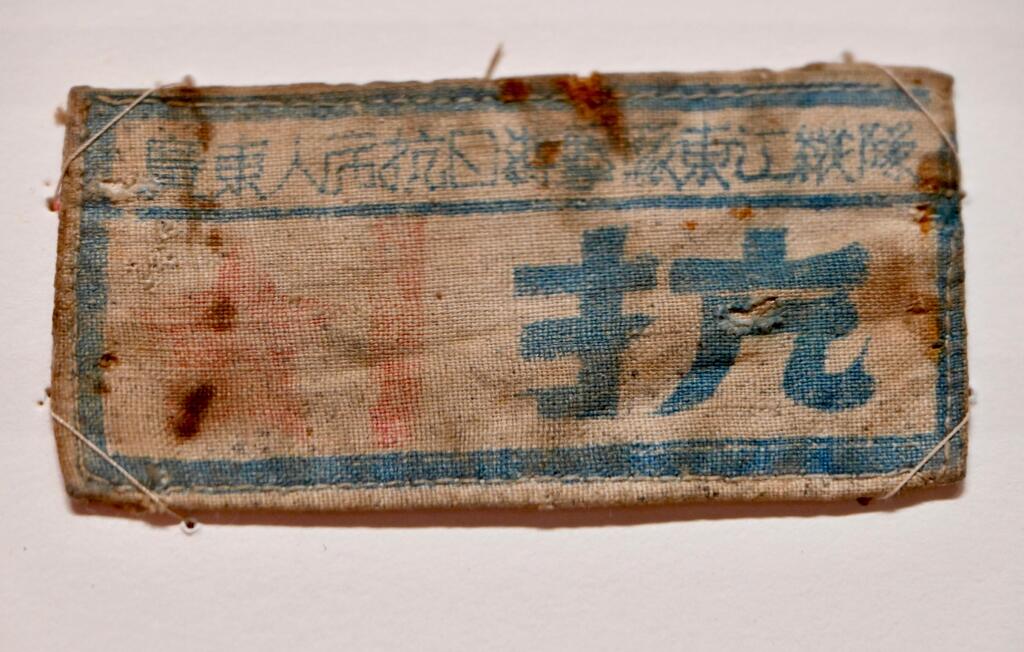 廣東人民抗日游擊隊東江縱隊
抗